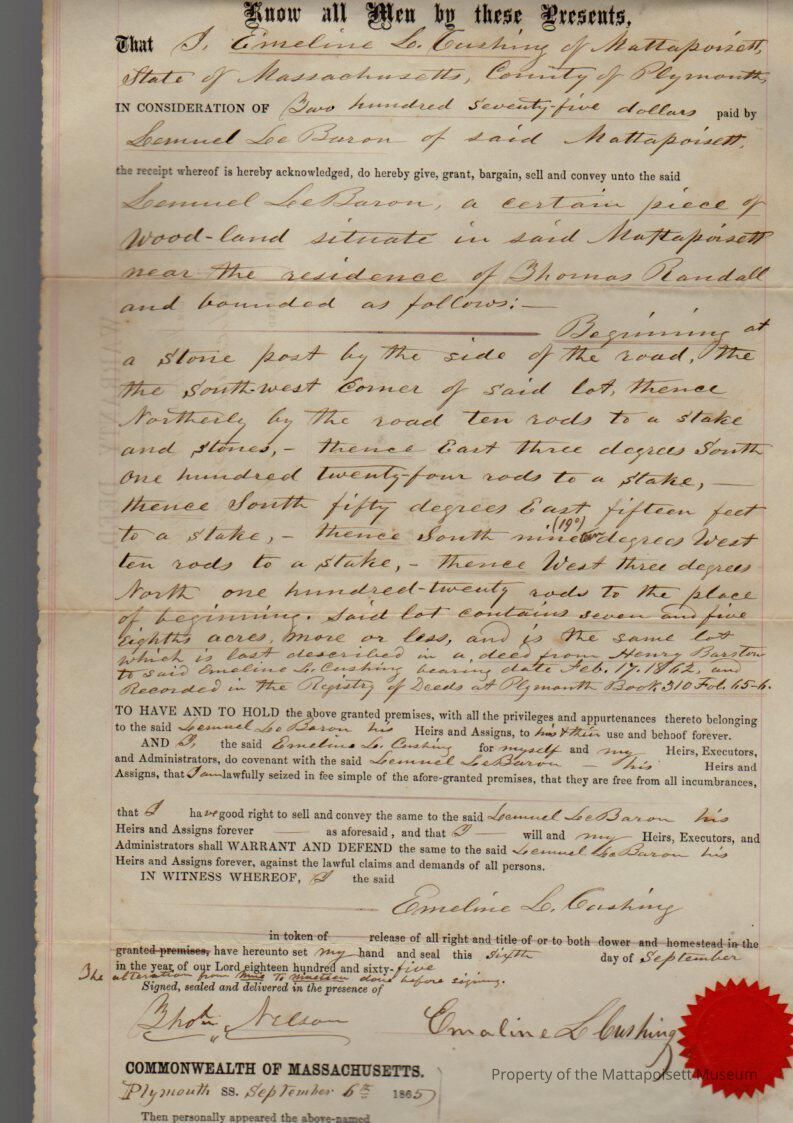 Know all Men by these Presents,
That I, Emeline L. Cushing of Mattapoisett,
State of Massachusetts, County of Plymouth,
IN CONSIDERATION OF Two hundred seventy-five dollars paid by
Lemuel LeBaron of said Mattapoisett,
the receipt whereof is hereby acknowledged, do hereby give, grant, bargain, sell and convey unto the said
Lemuel LeBaron, a certain piece of
Wood-land situate in said Mattapoisett
near the residence of Thomas Randall
and bounded as follows:—
Beginning at
a stone post by the side of the road, the
the South-west Corner of said lot, thence
Northerly by the road ten rods to a stake
and stones,- thence East three degrees South
One hundred twenty-four rods to a stake,—
thence South fifty degrees East fifteen feet
to a stake,- thence South nineteen (19°) degrees West
ten rods to a stake,- thence West three degrees
North one hundred-twenty rods to the place
of beginning. Said lot contains seven and five
eighths acres, more or less, and is the same lot
which is last described in a deed from Henry Barstow
to said Emeline L. Cushing bearing date Feb. 17. 1862, and
Recorded in the Registry of Deeds at Plymouth Book 310 Fol. 65-6.
TO HAVE AND TO HOLD the above granted premises, with all the privileges and appurtenances thereto belonging
to the said Lemuel LeBaron his Heirs and Assigns, to his & their use and behoof forever.
AND I, the said Emeline L. Cushing for myself and my Heirs, Executors,
and Administrators, do covenant with the said Lemuel LeBaron — his Heirs and
Assigns, that I am lawfully seized in fee simple of the afore-granted premises, that they are free from all incumbrances,
that I have good right to sell and convey the same to the said Lemuel LeBaron his
Heirs and Assigns forever — as aforesaid, and that I — will and my Heirs, Executors, and
Administrators shall WARRANT AND DEFEND the same to the said Lemuel LeBaron his
Heirs and Assigns forever, against the lawful claims and demands of all persons.
IN WITNESS WHEREOF, I the said
Emeline L. Cushing
in token of release of all right and title of or to both dower and homestead in the
granted premises, have hereunto set my hand and seal this sixth day of September
in the year of our Lord eighteen hundred and sixty-five
The alteration from nine to nineteen done before signing.
Signed, sealed and delivered in the presence of
Thos. Nelson Emaline L Cushing
COMMONWEALTH OF MASSACHUSETTS.
Property of the Mattapoisett Museum
Plymouth SS. September 6th 1865
Then personally appeared the above-named